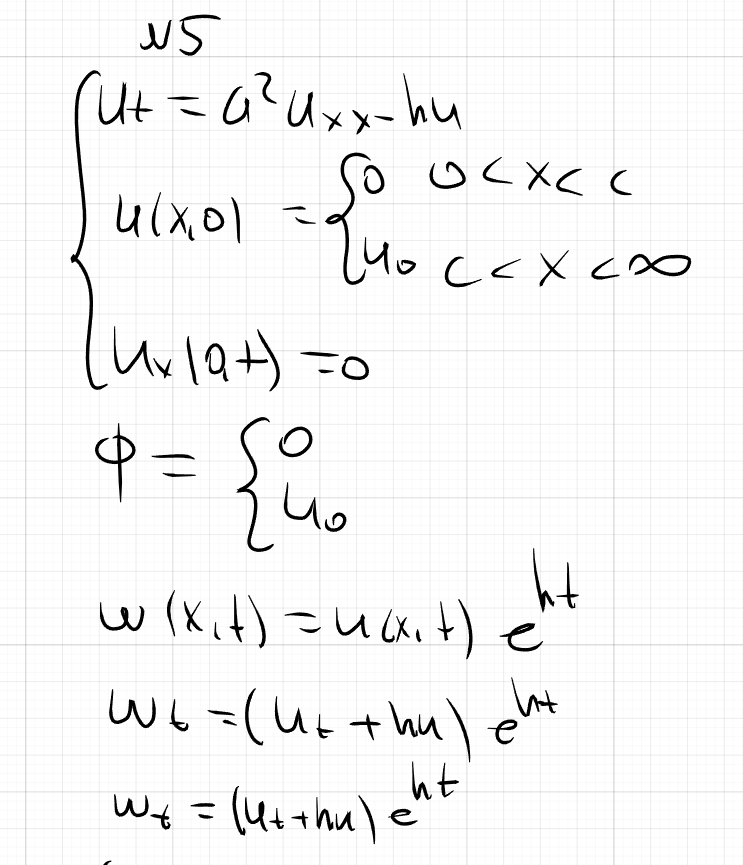 N5
u_t = a² u_xx - hu
u(x,0) = { 0 0 < x < c
u₀ c < x < ∞
u_x(0,t) = 0
φ = { 0
u₀
w(x,t) = u(x,t) e^{ht}
w_t = (u_t + hu) e^{ht}
w_t = (u_t + hu) e^{ht}